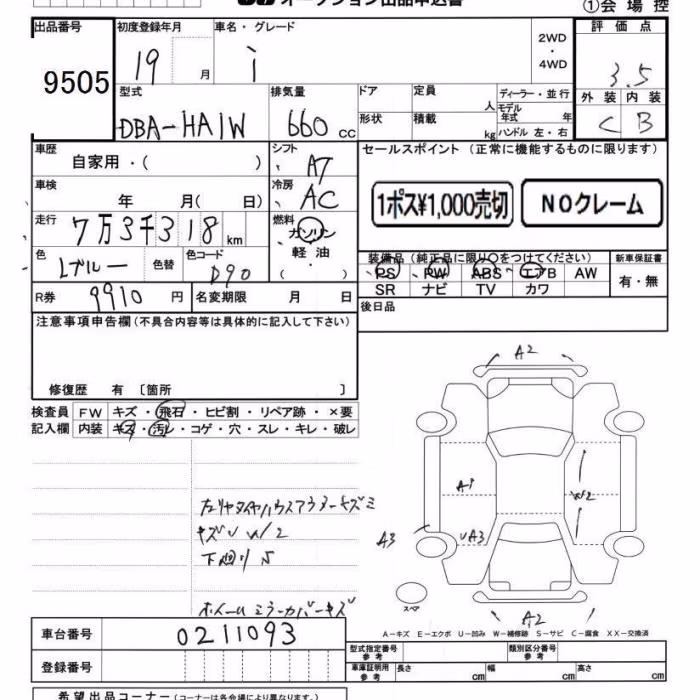 オークション出品申込書
①会場控
出品番号 9505
初度登録年月 19 月
車名・グレード i
2WD・4WD
評価点 3.5
外装 C 内装 B
型式 DBA-HA1W
排気量 660 cc
ドア 形状
定員 人 積載 kg
ディーラー・並行
モデル年式 年
ハンドル 左・右
車歴 自家用・( )
シフト AT
セールスポイント（正常に機能するものに限ります）
1ポス¥1,000売切 NOクレーム
車検 年 月( 日)
冷房 AC
走行 7万3千318km
燃料 ガソリン・軽油・( )
色 Lブルー 色替 色コード D90
装備品（純正品に限り○をつけてください）
PS PW ABS エアB AW
SR ナビ TV カワ
新車保証書 有・無
R券 9910円 名変期限 月 日
後日品
注意事項申告欄（不具合内容等は具体的に記入して下さい）
修復歴 有 〔箇所 〕
検査員記入欄
FW キズ・飛石・ヒビ割・リペア跡・×要
内装 キズ・汚レ・コゲ・穴・スレ・キレ・破レ
A2
A1
W2
A3 A3
A2
キズ W2
下廻りS
ホイール ミラーカバーキズ
スペア
A－キズ E－エクボ U－凹み W－補修跡 S－サビ C－腐食 XX－交換済
車台番号 0211093
登録番号
型式指定番号 参考
類別区分番号 参考
車庫証明用 参考 長さ cm 幅 cm 高さ cm
希望出品コーナー（コーナーは各会場により異なります。）